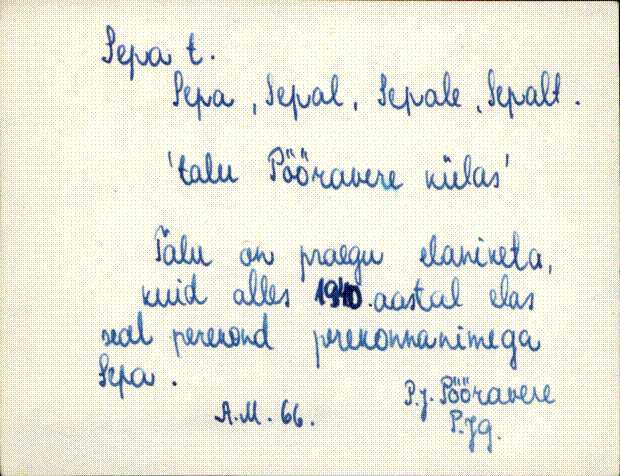 Sepa t.
Sepa, Sepal, Sepale, Sepalt.
'talu Pööravere külas'
Talu on praegu elaniketa,
kuid alles 1940. aastal elas
seal perekond perekonnanimega
Sepa.
P.J. Pööravere
A.M. 66.
P.Jg.